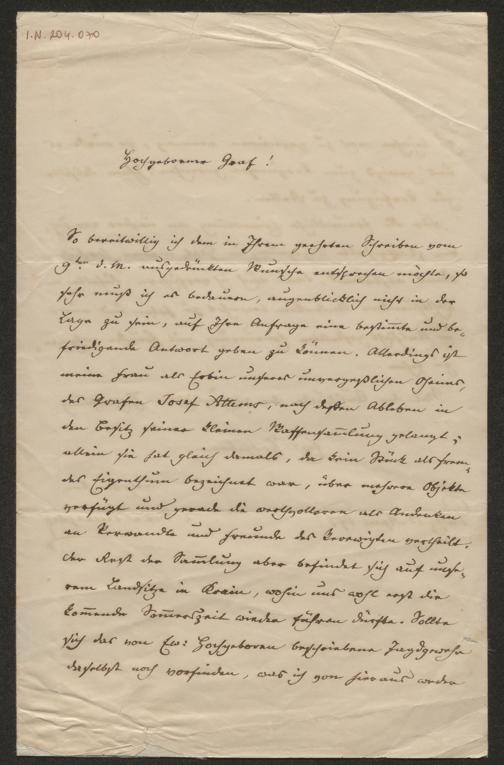 I.N. 204.070
Hochgeborner Graf!
So bereitwillig ich dem in Ihrem geehrten Schreiben vom
9ten d. M. ausgedrückten Wunsche entsprechen möchte, so
sehr muß ich es bedauern, augenblicklich nicht in der
Lage zu sein, auf Ihre Anfrage eine bestimmte und be-
friedigende Antwort geben zu können. Allerdings ist
meine Frau als Erbin unseres unvergeßlichen Oheims
des Grafen Josef Attems, nach deßen Ableben in
den Besitz seiner kleinen Waffensammlung gelangt;
allein sie hat gleich damals, da kein Stück als frem-
des Eigenthum bezeichnet war, über mehrere Objekte
verfügt und gerade die werthvolleren als Andenken
an Verwandte und Freunde des Verewigten vertheilt.
Der Rest der Sammlung aber befindet sich auf unse-
rem Landsitze in Krain, wohin uns wohl erst die
kommende Sommerszeit wieder führen dürfte. Sollte
sich das von Ew: Hochgeboren beschriebene Jagdgewehr
daselbst noch vorfinden, was ich von hier aus weder